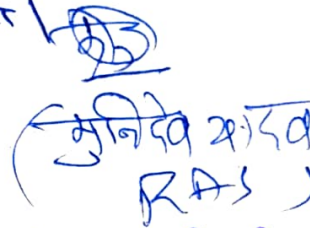 (मुनिदेव यादव
RAS)